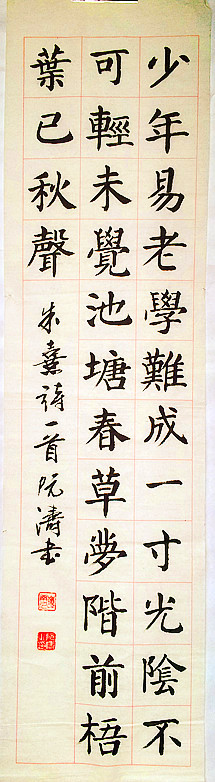 少年易老學難成一寸光陰不
可輕未覺池塘春草夢階前梧
葉已秋聲
朱熹詩一首阮濤書